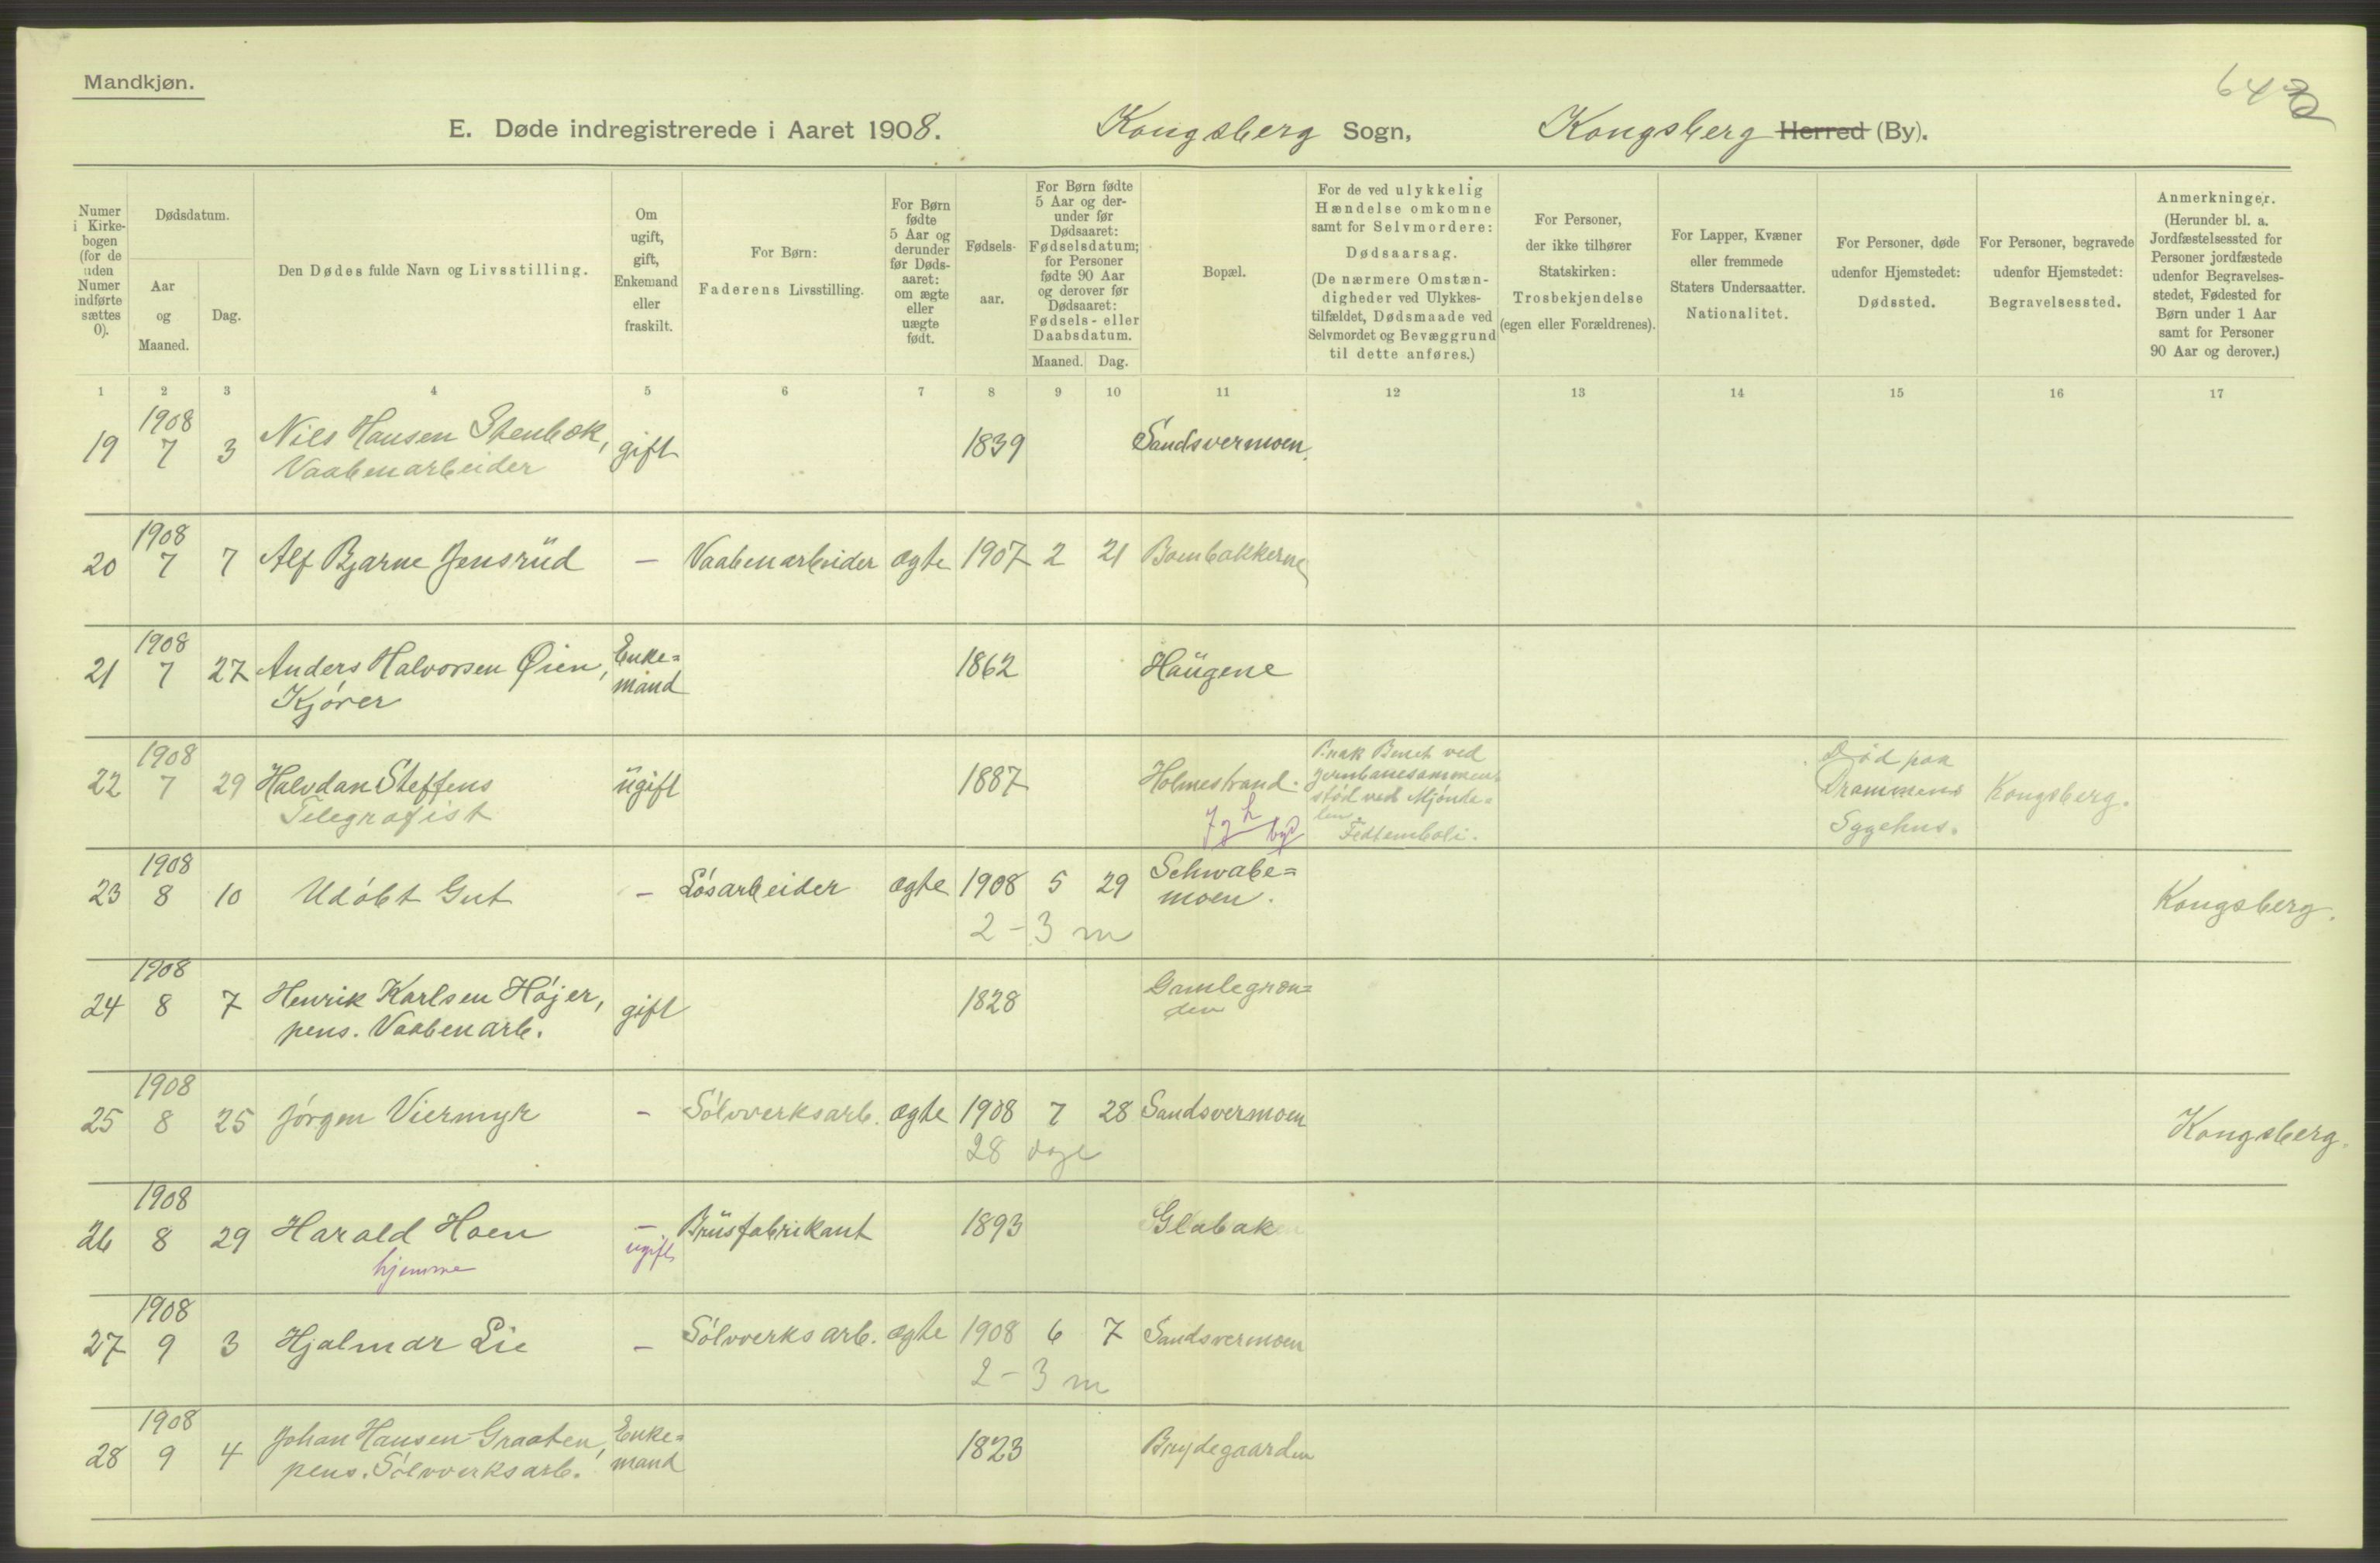 Mandkjøn.
64
E. Døde indregistrerede i Aaret 1908. Kongsberg Sogn, Kongsberg Herred (By).
Numer i Kirkebogen (for de uden Numer indførte sættes 0).
Dødsdatum.
Aar og Maaned.
Dag.
Den Dødes fulde Navn og Livsstilling.
Om ugift, gift, Enkemand eller fraskilt.
For Børn: Faderens Livsstilling.
For Børn fødte 5 Aar og derunder før Dødsaaret: om ægte eller uægte født.
Fødselsaar.
For Børn fødte 5 Aar og derunder før Dødsaaret: Fødselsdatum; for Personer fødte 90 Aar og derover før Dødsaaret: Fødsels- eller Daabsdatum.
Maaned. Dag.
Bopæl.
For de ved ulykkelig Hændelse omkomne samt for Selvmordere: Dødsaarsag. (De nærmere Omstændigheder ved Ulykkestilfældet, Dødsmaade ved Selvmordet og Bevæggrund til dette anføres.)
For Personer, der ikke tilhører Statskirken: Trosbekjendelse (egen eller Forældrenes).
For Lapper, Kvæner eller fremmede Staters Undersaatter. Nationalitet.
For Personer, døde udenfor Hjemstedet: Dødssted.
For Personer, begravede udenfor Hjemstedet: Begravelsessted.
Anmerkninger. (Herunder bl. a. Jordfæstelsessted for Personer jordfæstede udenfor Begravelsesstedet, Fødested for Børn under 1 Aar samt for Personer 90 Aar og derover.)
1 2 3 4 5 6 7 8 9 10 11 12 13 14 15 16 17
19 1908 7 3 Nils Hansen Stenbæk, Vaabenarbeider gift 1839 Sandsvermoen.
20 1908 7 7 Alf Bjarne Jensrud — Vaabenarbeider ægte 1907 2 21 Bombakkerne
21 1908 7 27 Anders Halvorsen Øien, Kjører Enke=mand 1862 Haugene
22 1908 7 29 Halvdan Steffens Telegrafist ugift 1887 Holmestrand. Brak Benet ved jernbanesammenstød ved Mjøndalen. Fedtemboli. Død paa Drammens Sygehus. Kongsberg.
23 1908 8 10 Udøbt Gut — Løsarbeider ægte 1908 5 29 Schwabe=moen. Kongsberg.
2 - 3 m
24 1908 8 7 Henrik Karlsen Højer, pens. Vaabenarb. gift 1828 Gamlegrænden
25 1908 8 25 Jørgen Viermyr - Sølvverksarb. ægte 1908 7 28 Sandsvermoen Kongsberg.
28 dage
26 1908 8 29 Harald Hoen hjemme — ugift Brusfabrikant 1893 Glabak
27 1908 9 3 Hjalmar Lie — Sølvverksarb. ægte 1908 6 7 Sandsvermoen
2 - 3 m
28 1908 9 4 Johan Hansen Graaten, pens. Sølvverksarb. Enke=mand 1823 Brydegaarden